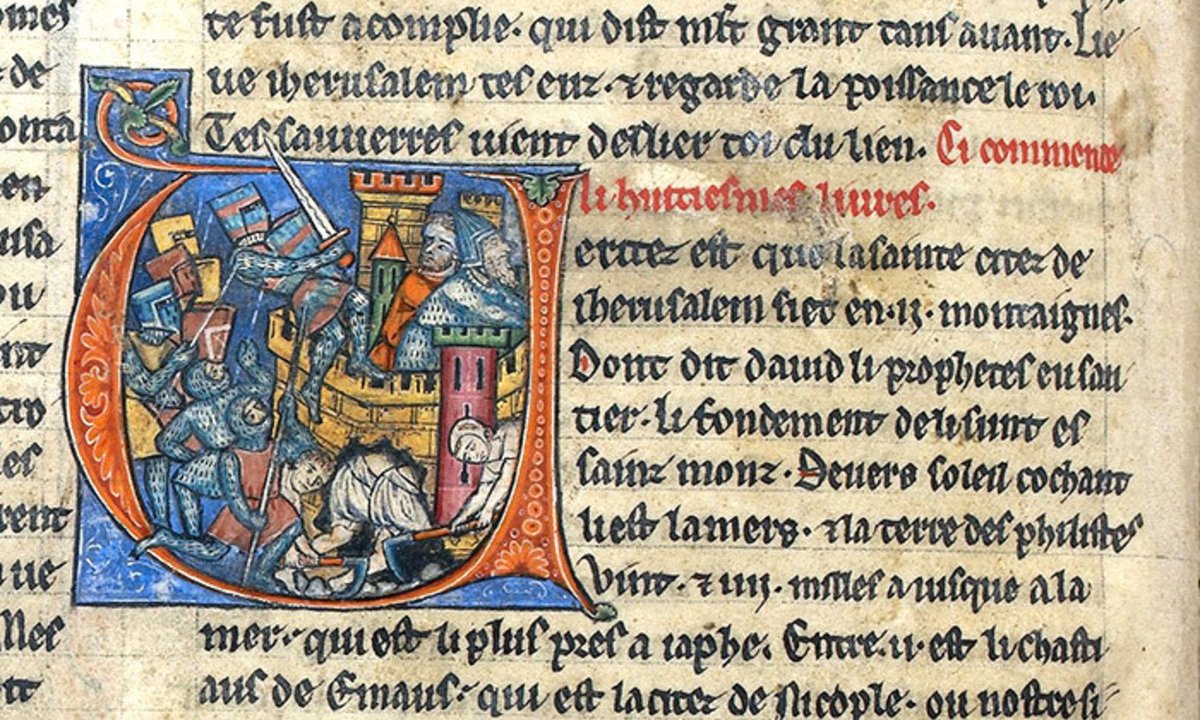 de
en
rent
te fust acomplie. qui dist mlt grant tans auant. Lie
ue iherusalem tes euz. ⁊ regarde la poissance le roi.
Tes sauuerres uient deslier toi du lien. Ci commence
li huitiesmes liures.
U
eritez est que la sainte citez de
iherusalem siet en .ii. montaignes.
Dont dit dauid li prophetes eu sau
tier. li fondement de li sunt es
sainz monz. Deuers soleil cochant
li est la mers. ⁊ la terre des philistes
Vint. ⁊ iiii. milles a iusque a la
mer. qui est li plus pres a iaphe. Entre .ii. est li chasti
aus de Emaus. qui est la citez de Nicople. ou nostre si